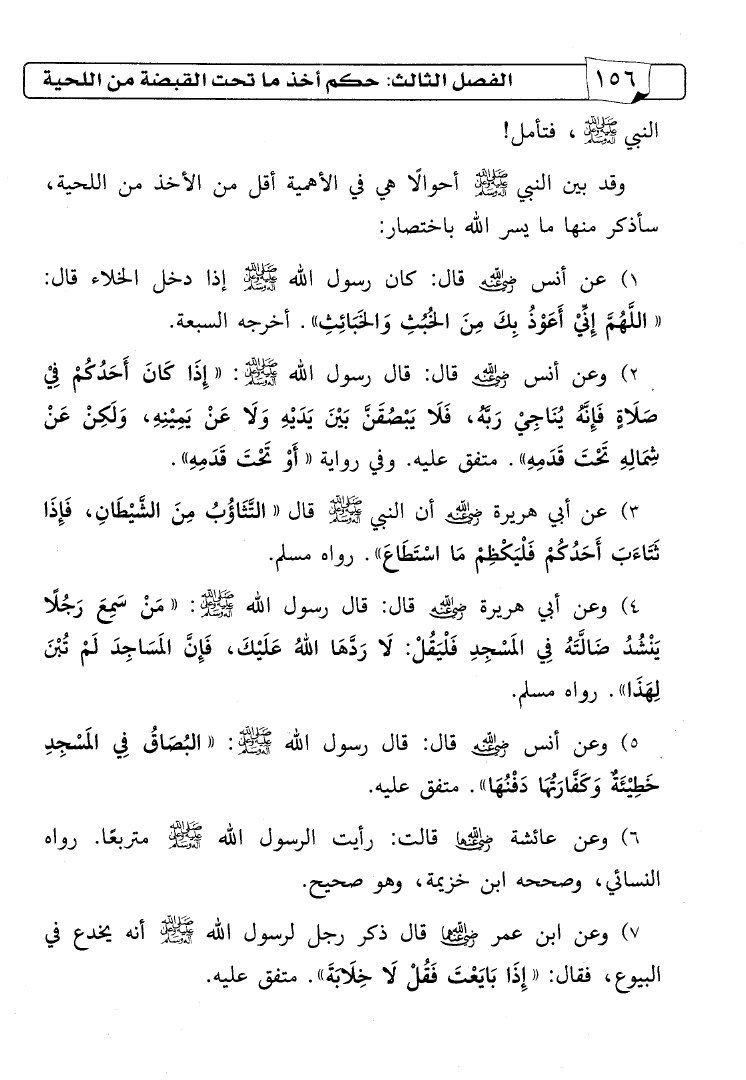 ١٥٦ الفصل الثالث: حكم أخذ ما تحت القبضة من اللحية
النبي ﷺ ، فتأمل!
وقد بين النبي ﷺ أحوالًا هي في الأهمية أقل من الأخذ من اللحية،
سأذكر منها ما يسر الله باختصار:
١) عن أنس رضي الله عنه قال: كان رسول الله ﷺ إذا دخل الخلاء قال:
«اللَّهُمَّ إِنِّيْ أَعَوْذُ بِكَ مِنَ الخُبُثِ وَالخَبَائِثِ». أخرجه السبعة.
٢) وعن أنس رضي الله عنه قال: قال رسول الله ﷺ: «إِذَا كَانَ أَحَدُكُمْ فِيْ
صَلَاةٍ فَإِنَّهُ يُنَاجِيْ رَبَّهُ، فَلَا يَبْصُقَنَّ بَيْنَ يَدَيْهِ وَلَا عَنْ يَمِيْنِهِ، وَلَكِنْ عَنْ
شِمَالِهِ تَحْتَ قَدَمِهِ». متفق عليه. وفي رواية «أَوْ تَحْتَ قَدَمِهِ».
٣) عن أبي هريرة رضي الله عنه أن النبي ﷺ قال «التَّثَاؤُبُ مِنَ الشَّيْطَانِ، فَإِذَا
تَثَاءَبَ أَحَدُكُمْ فَلْيَكْظِمْ مَا اسْتَطَاعَ». رواه مسلم.
٤) وعن أبي هريرة رضي الله عنه قال: قال رسول الله ﷺ: «مَنْ سَمِعَ رَجُلًا
يَنْشُدُ ضَالَّتَهُ فِي المَسْجِدِ فَلْيَقُلْ: لَا رَدَّهَا اللهُ عَلَيْكَ، فَإِنَّ المَسَاجِدَ لَمْ تُبْنَ
لِهَذَا». رواه مسلم.
٥) وعن أنس رضي الله عنه قال: قال رسول الله ﷺ: «البُصَاقُ فِي المَسْجِدِ
خَطِيْئَةٌ وَكَفَّارَتُهَا دَفْنُهَا». متفق عليه.
٦) وعن عائشة رضي الله عنها قالت: رأيت الرسول الله ﷺ متربعًا. رواه
النسائي، وصححه ابن خزيمة، وهو صحيح.
٧) وعن ابن عمر رضي الله عنهما قال ذكر رجل لرسول الله ﷺ أنه يخدع في
البيوع، فقال: «إِذَا بَايَعْتَ فَقُلْ لَا خِلَابَةَ». متفق عليه.